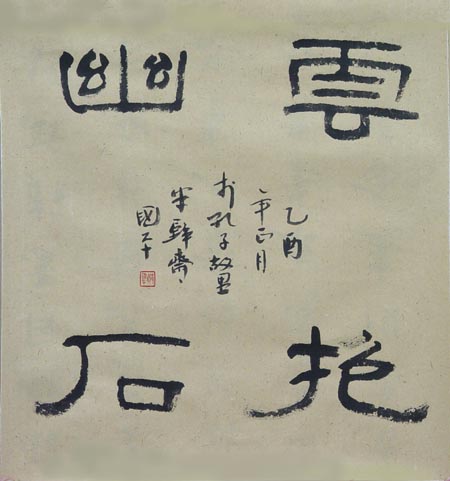 雲抱
幽石
乙酉
年正月
於孔子故里
半 齋
國